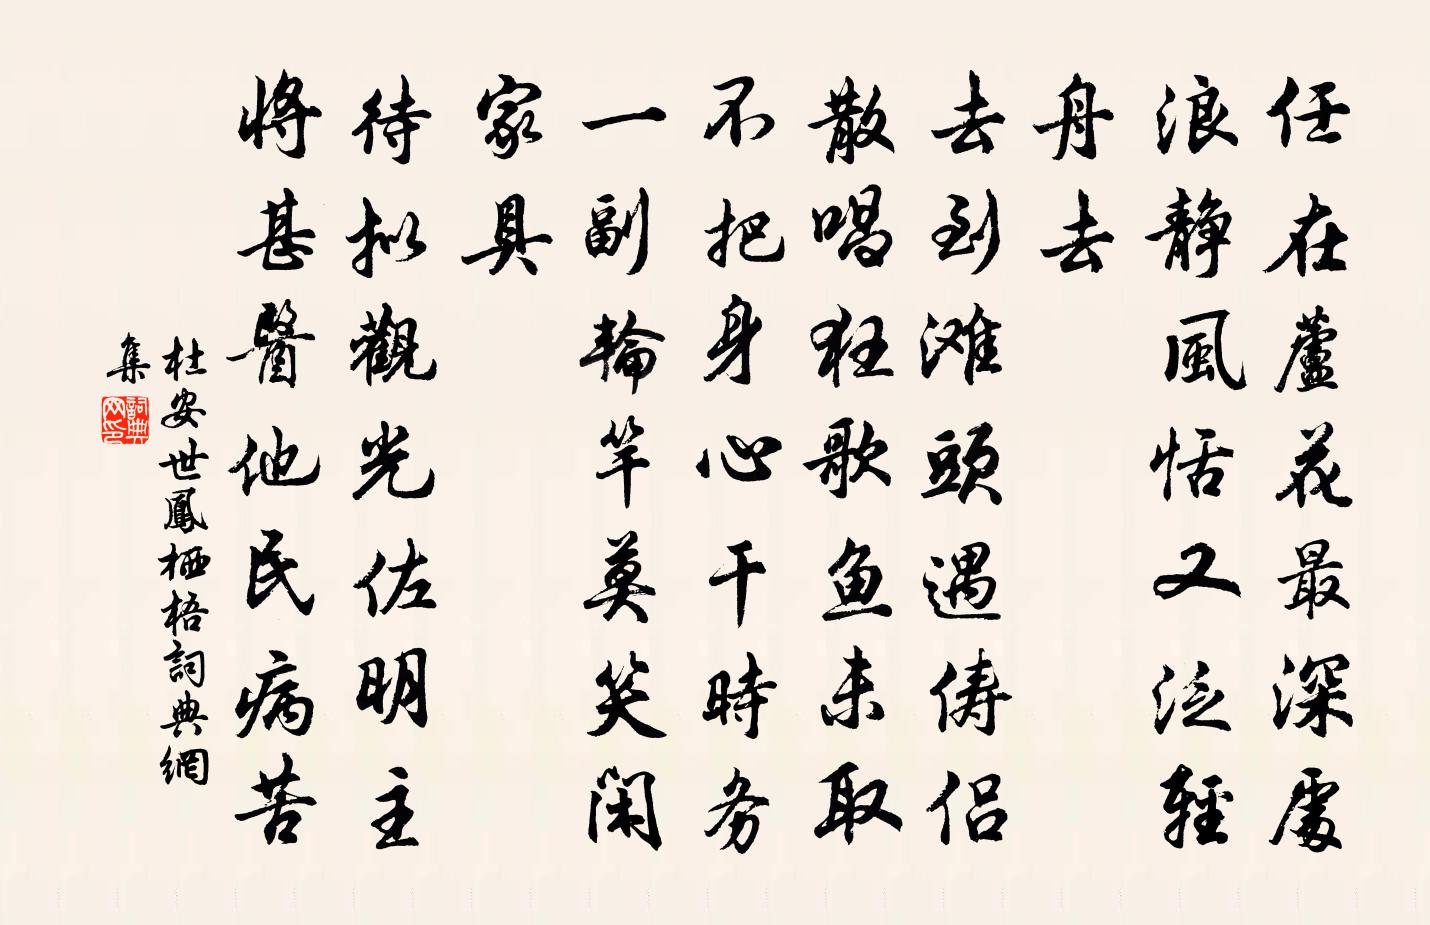 任在蘆花最深處
浪静風恬又泛輕
舟去
去到滩頭遇俦侣
散唱狂歌鱼未取
不把身心干時务
一副輪竿莫笑闲
家具
待拟觀光佐明主
将甚醫他民病苦
杜安世鳳栖梧詞典網
集
詞典网印